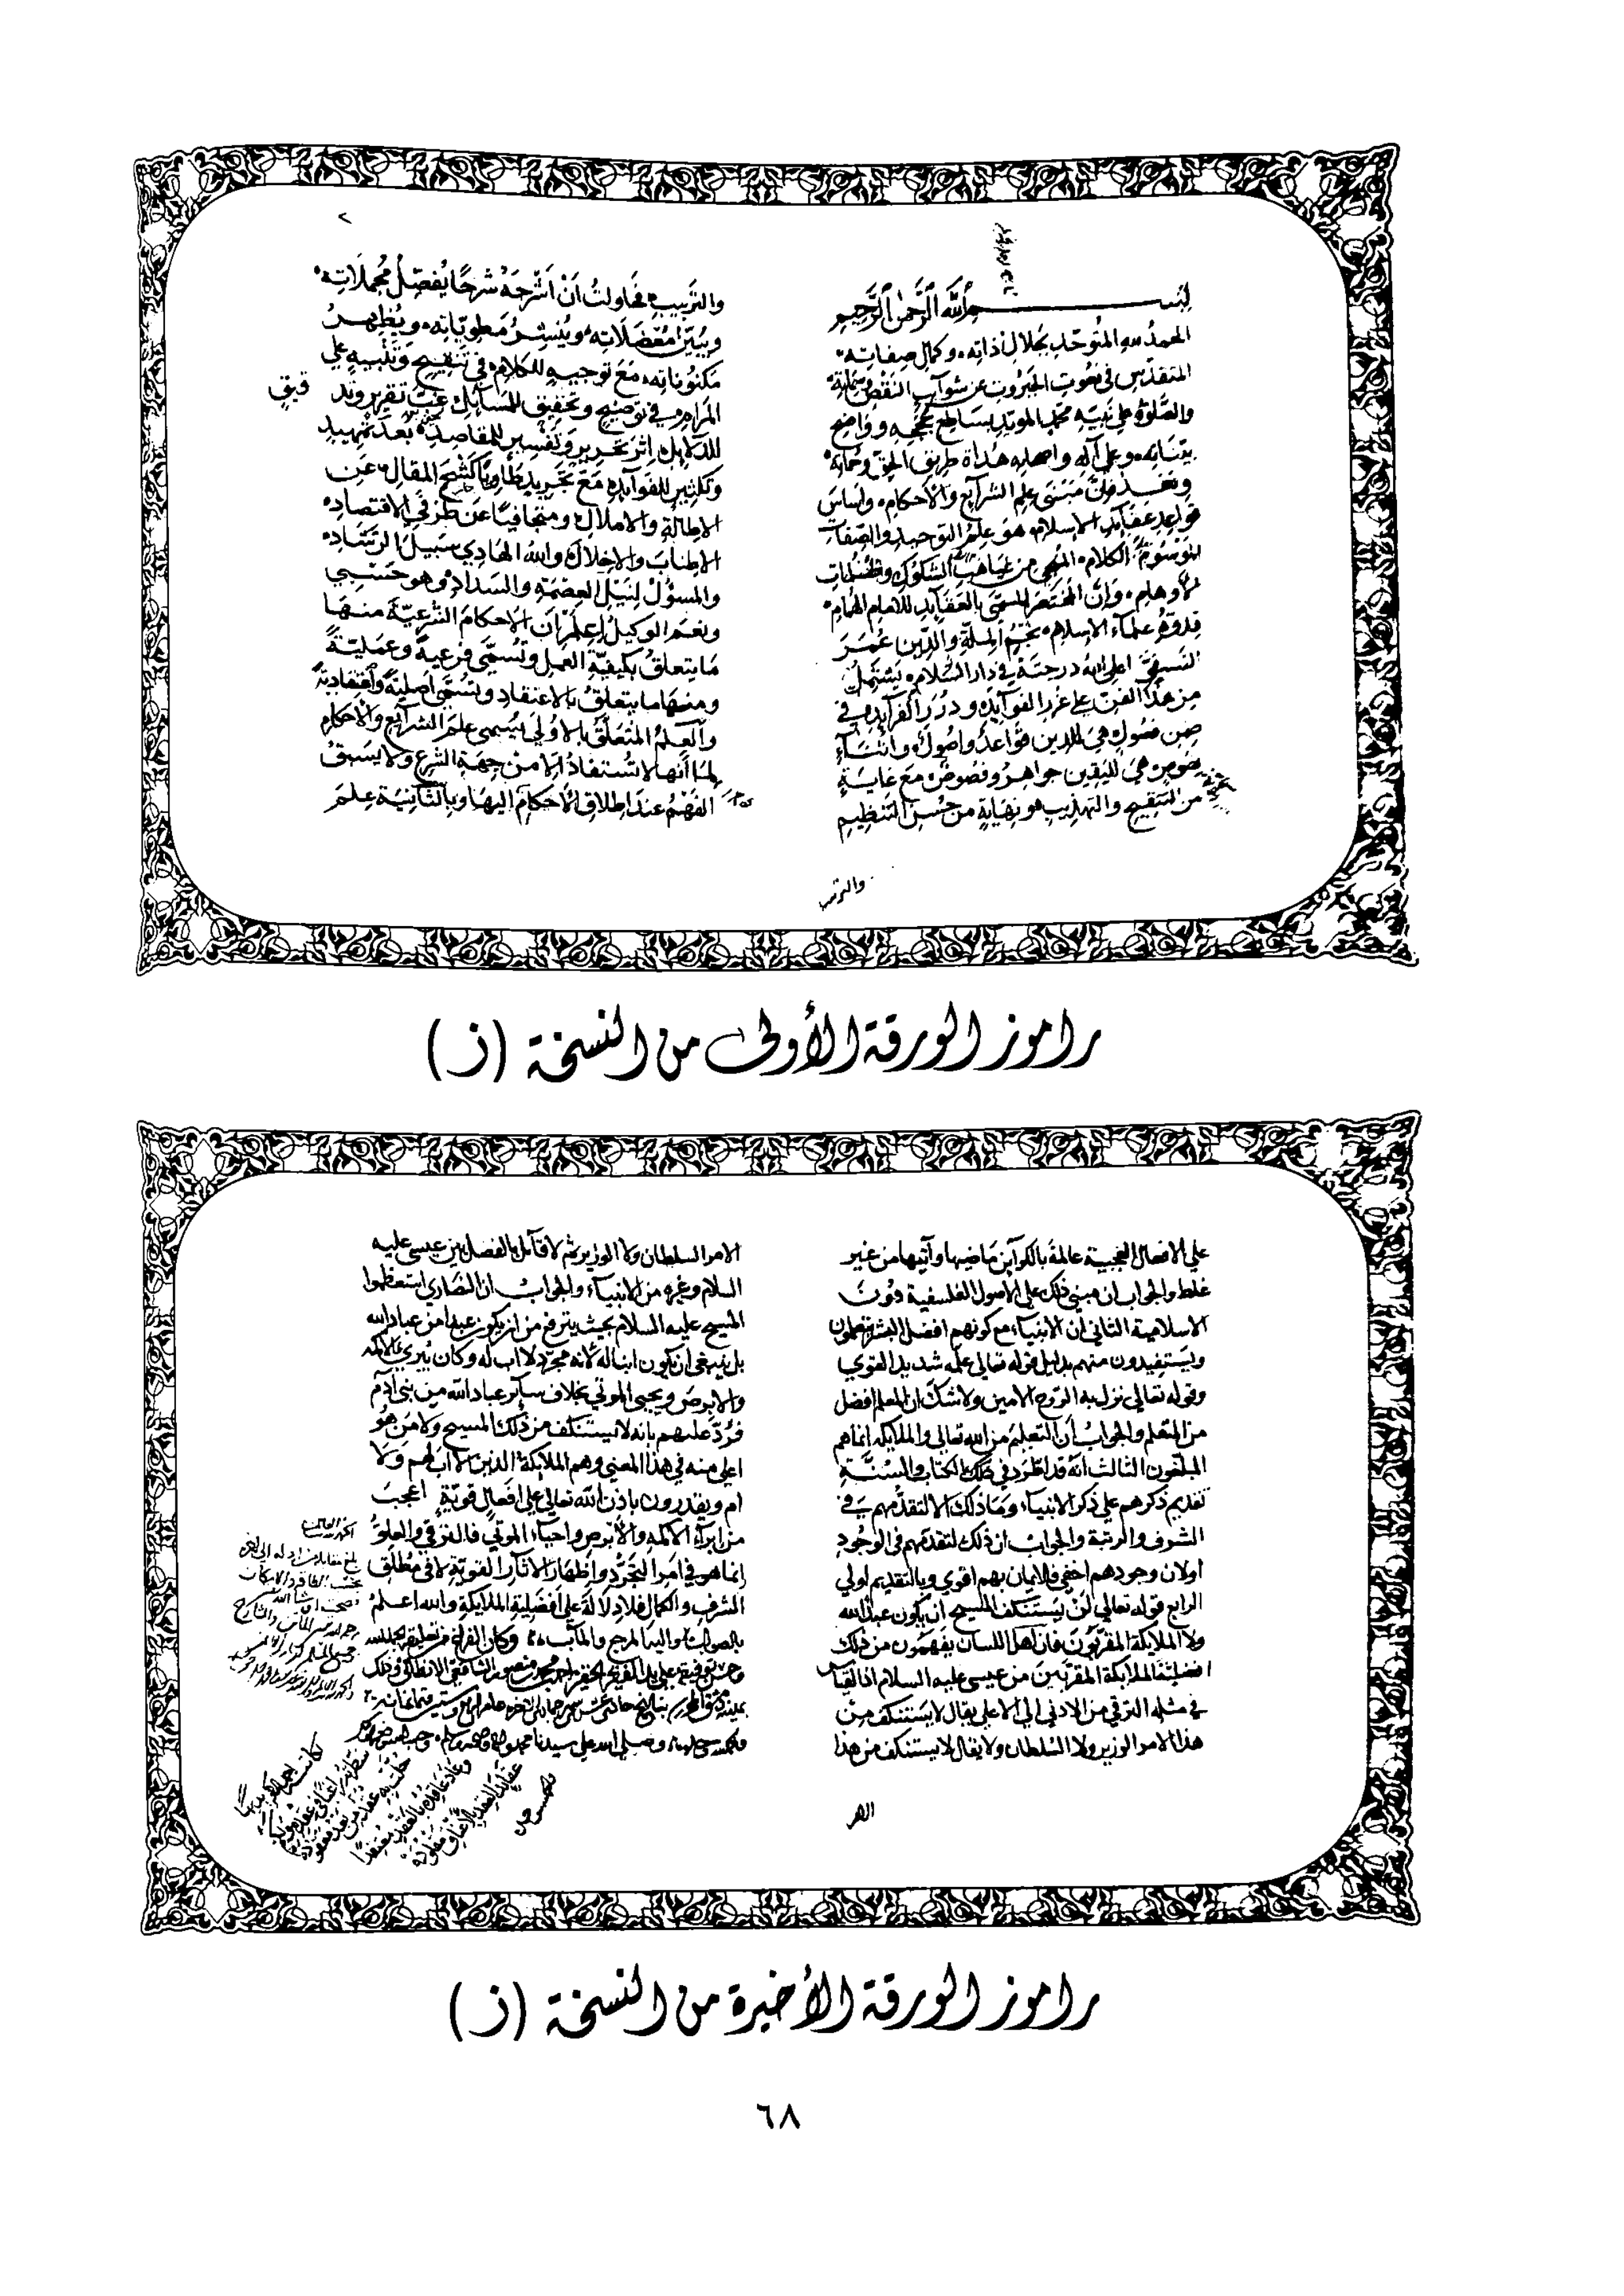 بسم الله الرحمن الرحيم
الحمد لله المتوحد بجلال ذاته وكمال صفاته
المتقدس في نعوت الجبروت عن شوائب النقص وسماته
والصلوة على نبيه محمد المويد بساطع حججه وواضح
بيناته وعلى آله واصحابه هداة طريق الحق وحماته
وبعد فان مبنى علم الشرايع والأحكام واساس
قواعد عقايد الاسلام هو علم التوحيد والصفات
الموسوم بالكلام المنجي من غياهب الشكوك وظلمات
الأوهام وان المختصر المسمى بالعقايد للامام الهمام
قدوة علماء الاسلام نجم الملة والدين عمر
النسفي اعلى الله درجته في دار السلام يشتمل
من هذا الفن على غرر الفوايد ودرر الفرايد في
ضمن فصول هي للدين قواعد واصول واثناء
نصوص هي لليقين جواهر وفصوص مع غاية
من التنقيح والتهذيب ونهاية من حسن التنظيم
والترتيب
٢
والترتيب فحاولت أن أشرحه شرحا يفصل مجملاته
ويبين معضلاته وينشر مطوياته ويظهر
مكنوناته مع توجيه للكلام في تنقيح وتنبيه على
المرام في توضيح وتحقيق للمسايل غب تقرير وتد قيق
للدلايل اثر تحرير وتفسير للمقاصد بعد تمهيد
وتكثير للفوايد مع تجريد طاويا كشح المقال عن
الاطالة والاملال ومتجافيا عن طرفي الاقتصاد
الاطناب والاخلال والله الهادي سبيل الرشاد
والمسؤل لنيل العصمة والسداد وهو حسبي
ونعم الوكيل إعلم أن الاحكام الشرعية منها
ما يتعلق بكيفية العمل وتسمى فرعية وعملية
ومنها ما يتعلق بالاعتقاد وتسمى اصلية واعتقادية
والعلم المتعلق بالاولى يسمى علم الشرايع والاحكام
لما أنها لا تستفاد الا من جهة الشرع ولا يسبق
الفهم عند اطلاق الأحكام اليها وبالثانية علم
راموز الورقة الأولى من النسخة (ز)
على الافعال العجيبة عالمة بالكواين ماضيها وآتيها من غير
غلط والجواب ان مبنى ذلك على الاصول الفلسفية دون
الاسلامية الثاني ان الانبياء مع كونهم افضل البشر يتعلمون
ويستفيدون منهم بدليل قوله تعالى علمه شديد القوى
وقوله تعالى نزل به الروح الامين ولا شك ان المعلم افضل
من المتعلم والجواب أن التعليم من الله تعالى والملايكة انما هم
المبلغون الثالث انه قد اطرد في الكتاب والسنة
تقديم ذكرهم على ذكر الانبياء وما ذلك الا لتقدمهم في
الشرف والرتبة والجواب ان ذلك لتقدمهم في الوجود
او لان وجودهم اخفى فالايمان بهم اقوى وبالتقديم اولى
الرابع قوله تعالى لن يستنكف المسيح ان يكون عبدا لله
ولا الملايكة المقربون فان اهل اللسان يفهمون من ذلك
افضلية الملايكة المقربين من عيسى عليه السلام اذ القياس
في مثله الترقي من الادنى الى الاعلى يقال لا يستنكف من
هذا الامر الوزير ولا السلطان ولا يقال لا يستنكف من هذا
الامر
الامر السلطان ولا الوزير ثم لا قائل بالفضل بين عيسى عليه
السلام وغيره من الانبياء والجواب ان النصارى استعظموا
المسيح عليه السلام بحيث يترفع من ان يكون عبدا من عباد الله
بل ينبغي ان يكون ابنا له لانه مجرد لا اب له وكان يبري الاكمه
والابرص ويحيى الموتى بخلاف سائر عباد الله من بني آدم
فرد عليهم بانه لا يستنكف من ذلك المسيح ولا من هو
اعلى منه في هذا المعنى وهم الملايكة الذين لا أب لهم ولا
ام ويقدرون باذن الله تعالى على افعال قوية اعجب
من ابراء الاكمه والأبرص واحياء الموتى فالترقي والعلو
انما هو في امر التجرد واظهار الآثار القوية لا في مطلق
الشرف والكمال فلا دلالة على افضلية الملايكة والله اعلم
بالصواب واليه المرجع والمآب وكان الفراغ من تعليقه
راموز الورقة الأخيرة من النسخة (ز)
٦٨